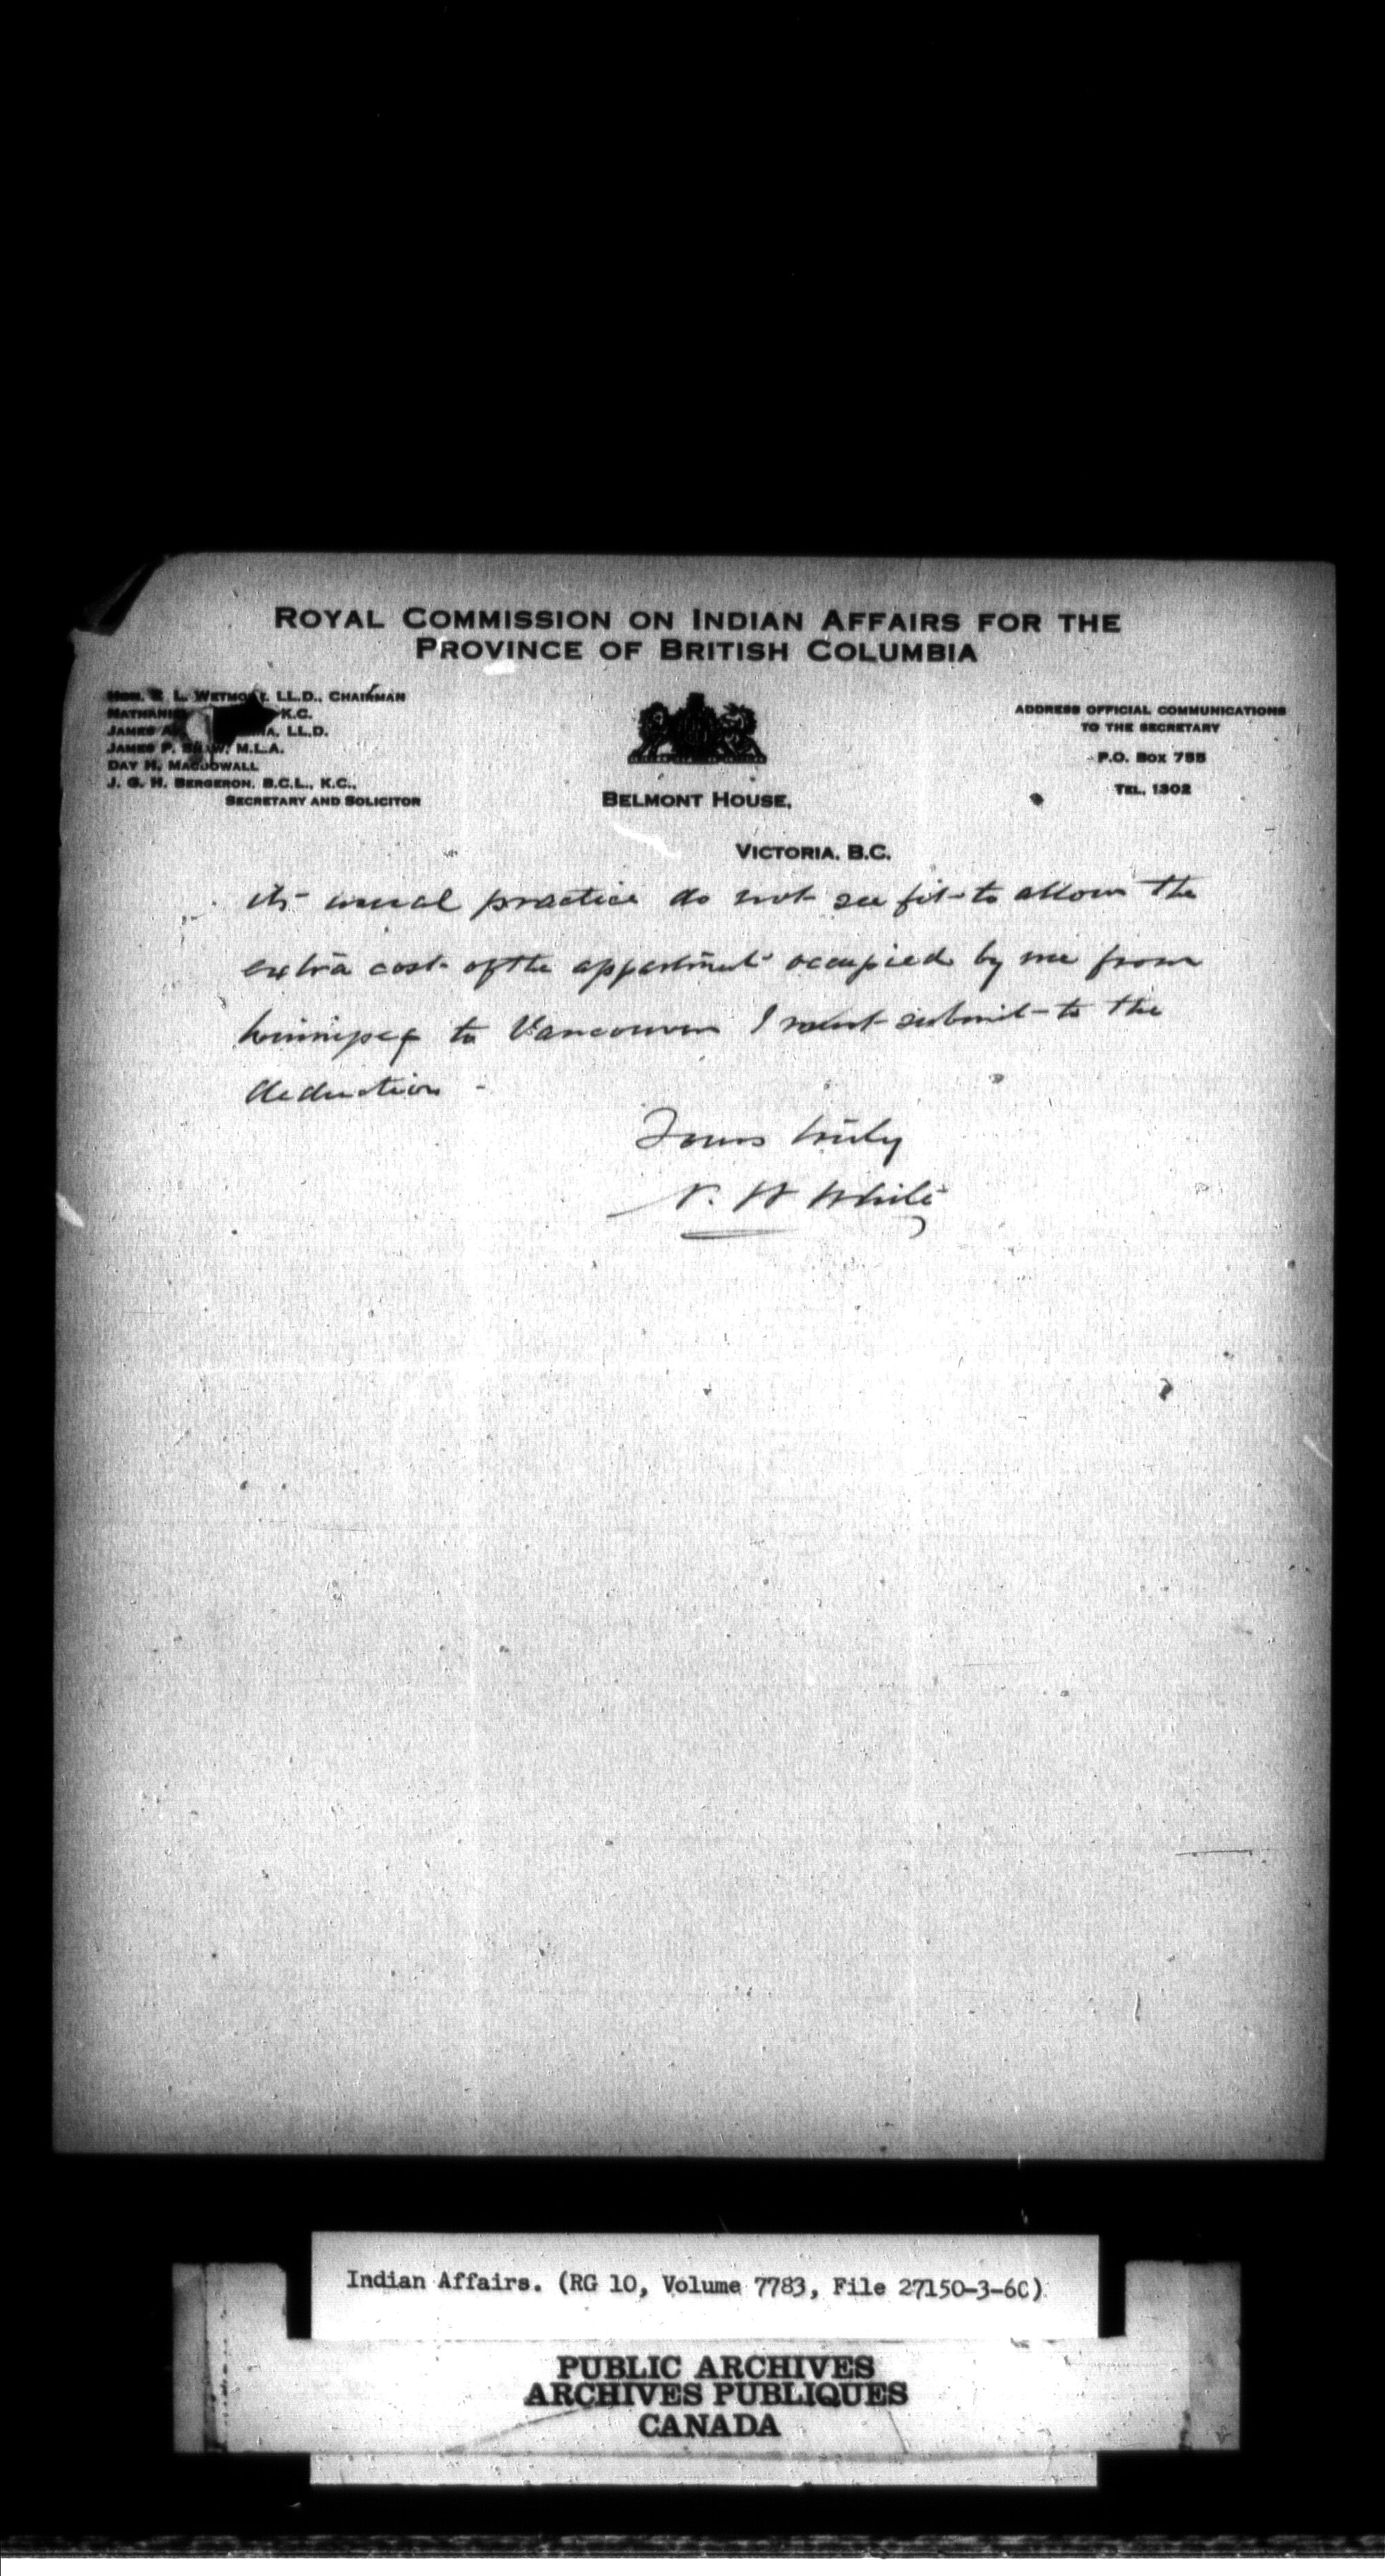 ROYAL COMMISSION ON INDIAN AFFAIRS FOR THE
PROVINCE OF BRITISH COLUMBIA
HON. E. L. WETMORE, LL.D., CHAIRMAN
K.C.
JAMES LL.D.
JAMES P. SHAW, M.L.A.
DAY H. MACDOWALL
J. G. H. BERGERON, B.C.L., K.C.,
SECRETARY AND SOLICITOR
ADDRESS OFFICIAL COMMUNICATIONS
TO THE SECRETARY
P.O. BOX 755
TEL. 1302
BELMONT HOUSE,
VICTORIA, B.C.
its usual practice do not see fit to allow the
extra cost of the appartment occupied by me from
Winnipeg to Vancouver I must submit to the
deduction -
Yours truly
N. W White
Indian Affairs. (RG 10, Volume 7783, File 27150-3-6C)
PUBLIC ARCHIVES
ARCHIVES PUBLIQUES
CANADA